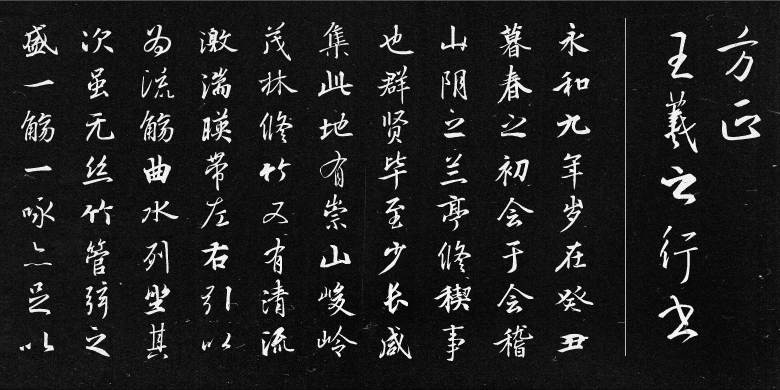 方正
王羲之行书
永和九年岁在癸丑
暮春之初会于会稽
山阴之兰亭修稧事
也群贤毕至少长咸
集此地有崇山峻岭
茂林修竹又有清流
激湍暎带左右引以
为流觞曲水列坐其
次虽无丝竹管弦之
盛一觞一咏亦足以